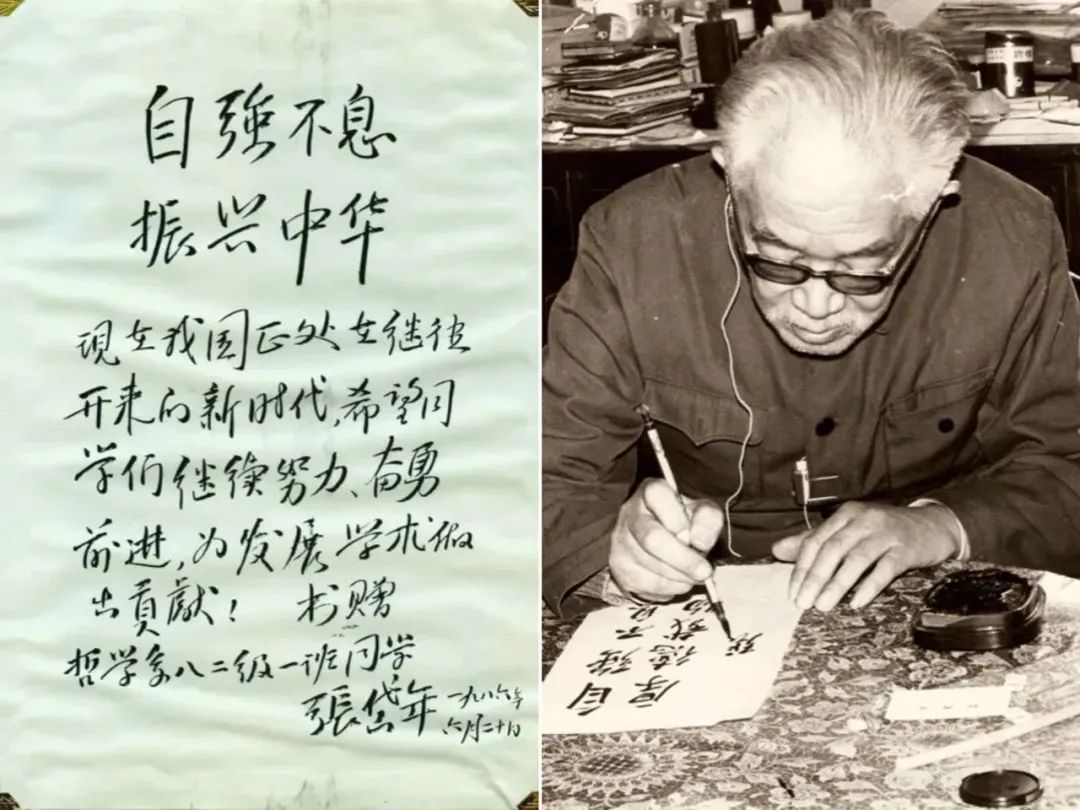 自強不息
振兴中华
现在我国正处在继往
开来的新时代,希望同
学们继续努力、奋勇
前进,为发展学术做
出貢獻! 书赠
哲学系八二级一班同学
張岱年 一九八六年
六月二十日
自強不息
厚德載物
張